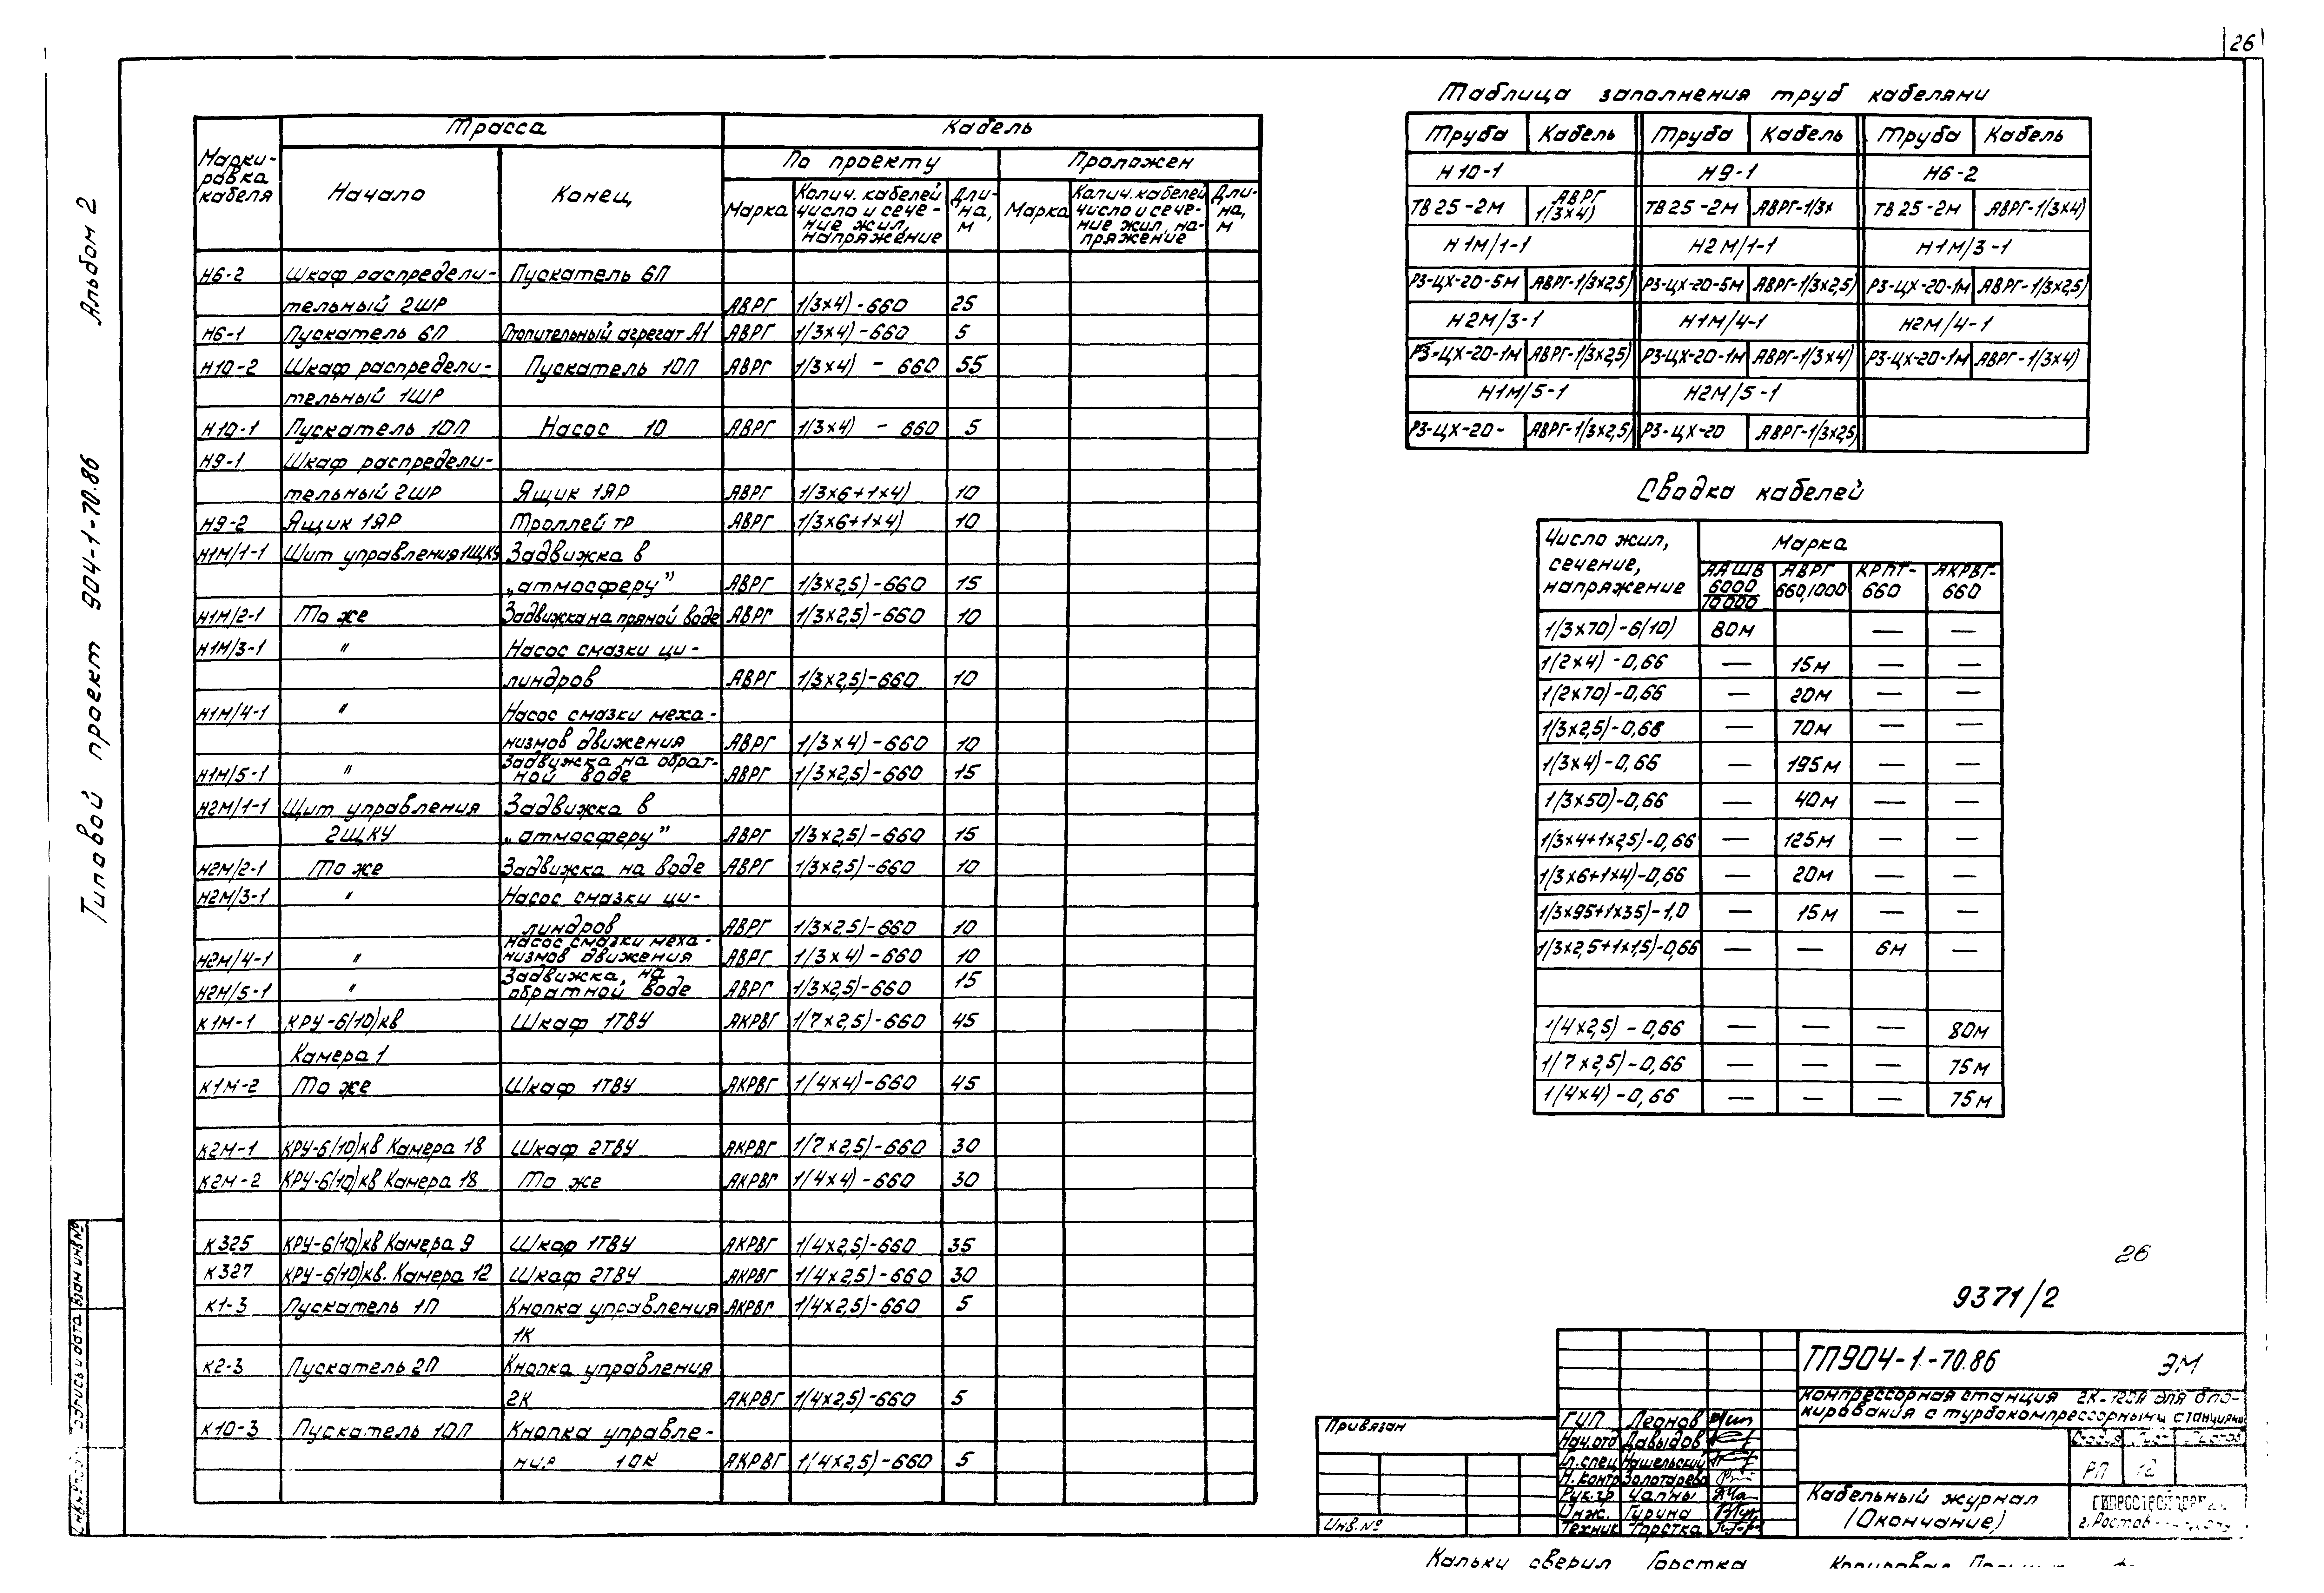 26
Альбом 2
Типовой проект 904-1-70.86
Трасса
Кабель
Марки-
ровка
кабеля
Начало
Конец
По проекту
Проложен
Марка
Колич. кабелей
число и сече-
ние жил,
напряжение
Дли-
на,
м
Марка
Колич. кабелей
число и сече-
ние жил, на-
пряжение
Дли-
на,
м
Н6-2 Шкаф распредели- Пускатель 6П
тельный 2ШР АВРГ 1/3х4)-660 25
Н6-1 Пускатель 6П Отопительный агрегат А1 АВРГ 1/3х4)-660 5
Н10-2 Шкаф распредели- Пускатель 10П АВРГ 1/3х4) - 660 55
тельный 1ШР
Н10-1 Пускатель 10П Насос 10 АВРГ 1/3х4) - 660 5
Н9-1 Шкаф распредели-
тельный 2ШР Ящик 1ЯР АВРГ 1/3х6+1х4) 10
Н9-2 Ящик 1ЯР Троллей ТР АВРГ 1/3х6+1х4) 10
Н1М/1-1 Щит управления 1ЩКУ Задвижка в
„атмосферу” АВРГ 1/3х2,5)-660 15
Н1М/2-1 То же Задвижка на прямой воде АВРГ 1/3х2,5)-660 10
Н1М/3-1 " Насос смазки ци-
линдров АВРГ 1/3х2,5)-660 10
Н1М/4-1 " Насос смазки меха-
низмов движения АВРГ 1/3х4)-660 10
Н1М/5-1 " Задвижка на обрат-
ной воде АВРГ 1/3х2,5)-660 15
Н2М/1-1 Щит управления Задвижка в
2ЩКУ „атмосферу” АВРГ 1/3х2,5)-660 15
Н2М/2-1 То же Задвижка на воде АВРГ 1/3х2,5)-660 10
Н2М/3-1 " Насос смазки ци-
линдров АВРГ 1/3х2,5)-660 10
Насос смазки меха-
Н2М/4-1 " низмов движения АВРГ 1/3х4)-660 10
Задвижка на
Н2М/5-1 " обратной воде АВРГ 1/3х2,5)-660 15
К1М-1 КРУ-6(10)кв Шкаф 1ТВУ АКРВГ 1/7х2,5)-660 45
Камера 1
К1М-2 То же Шкаф 1ТВУ АКРВГ 1(4х4)-660 45
К2М-1 КРУ-6(10)кв Камера 18 Шкаф 2ТВУ АКРВГ 1/7х2,5)-660 30
К2М-2 КРУ-6(10)кв Камера 18 То же АКРВГ 1(4х4)-660 30
К325 КРУ-6(10)кв Камера 9 Шкаф 1ТВУ АКРВГ 1(4х2,5)-660 35
К327 КРУ-6(10)кв. Камера 12 Шкаф 2ТВУ АКРВГ 1(4х2,5)-660 30
К1-3 Пускатель 1П Кнопка управления АКРВГ 1(4х2,5)-660 5
1К
К2-3 Пускатель 2П Кнопка управления
2К АКРВГ 1(4х2,5)-660 5
К10-3 Пускатель 10П Кнопка управле-
ния 10К АКРВГ 1(4х2,5)-660 5
Таблица заполнения труб кабелями
Труба Кабель Труба Кабель Труба Кабель
Н10-1 Н9-1 Н6-2
ТВ25-2м АВРГ 1/3х4) ТВ25-2м АВРГ-1/3х ТВ25-2м АВРГ-1/3х4)
Н1М/1-1 Н2М/1-1 Н1М/3-1
РЗ-ЦХ-20-5м АВРГ-1/3х2,5) РЗ-ЦХ-20-5м АВРГ-1/3х2,5) РЗ-ЦХ-20-1м АВРГ-1/3х2,5)
Н2М/3-1 Н1М/4-1 Н2М/4-1
РЗ-ЦХ-20-1м АВРГ-1/3х2,5) РЗ-ЦХ-20-1м АВРГ-1/3х4) РЗ-ЦХ-20-1м АВРГ-1/3х4)
Н1М/5-1 Н2М/5-1
РЗ-ЦХ-20- АВРГ-1/3х2,5) РЗ-ЦХ-20 АВРГ-1/3х2,5)
Сводка кабелей
Число жил,
сечение,
напряжение
Марка
ААШВ
6000
10000
АВРГ
660,1000
КРПТ-
660
АКРВГ-
660
1/3х70)-6(10) 80м — —
1(2х4)-0,66 — 15м — —
1(2х70)-0,66 — 20м — —
1/3х2,5)-0,68 — 70м — —
1/3х4)-0,66 — 195м — —
1/3х50)-0,66 — 40м — —
1/3х4+1х2,5)-0,66 — 125м — —
1/3х6+1х4)-0,66 — 20м — —
1/3х95+1х35)-1,0 — 15м — —
1/3х2,5+1х1,5)-0,66 — — 6м —
1(4х2,5)-0,66 — — — 80м
1(7х2,5)-0,66 — — — 75м
1(4х4)-0,66 — — — 75м
26
9371/2
ТП904-1-70.86 ЭМ
Компрессорная станция для бло-
кирования с турбокомпрессорными станциями
Стадия Лист Листов
РП 12
Кабельный журнал
(Окончание)
г. Ростов
ГИП Леонов
Нач.отд Давыдов
Гл.спец Нашельский
Н.контр Золотарева
Рук.гр Чапны
Инж. Гурина
Техник Горстка
Привязан
Инв.№
Взам инв №
подпись и дата
Кальку сверил Горстка
Копировал